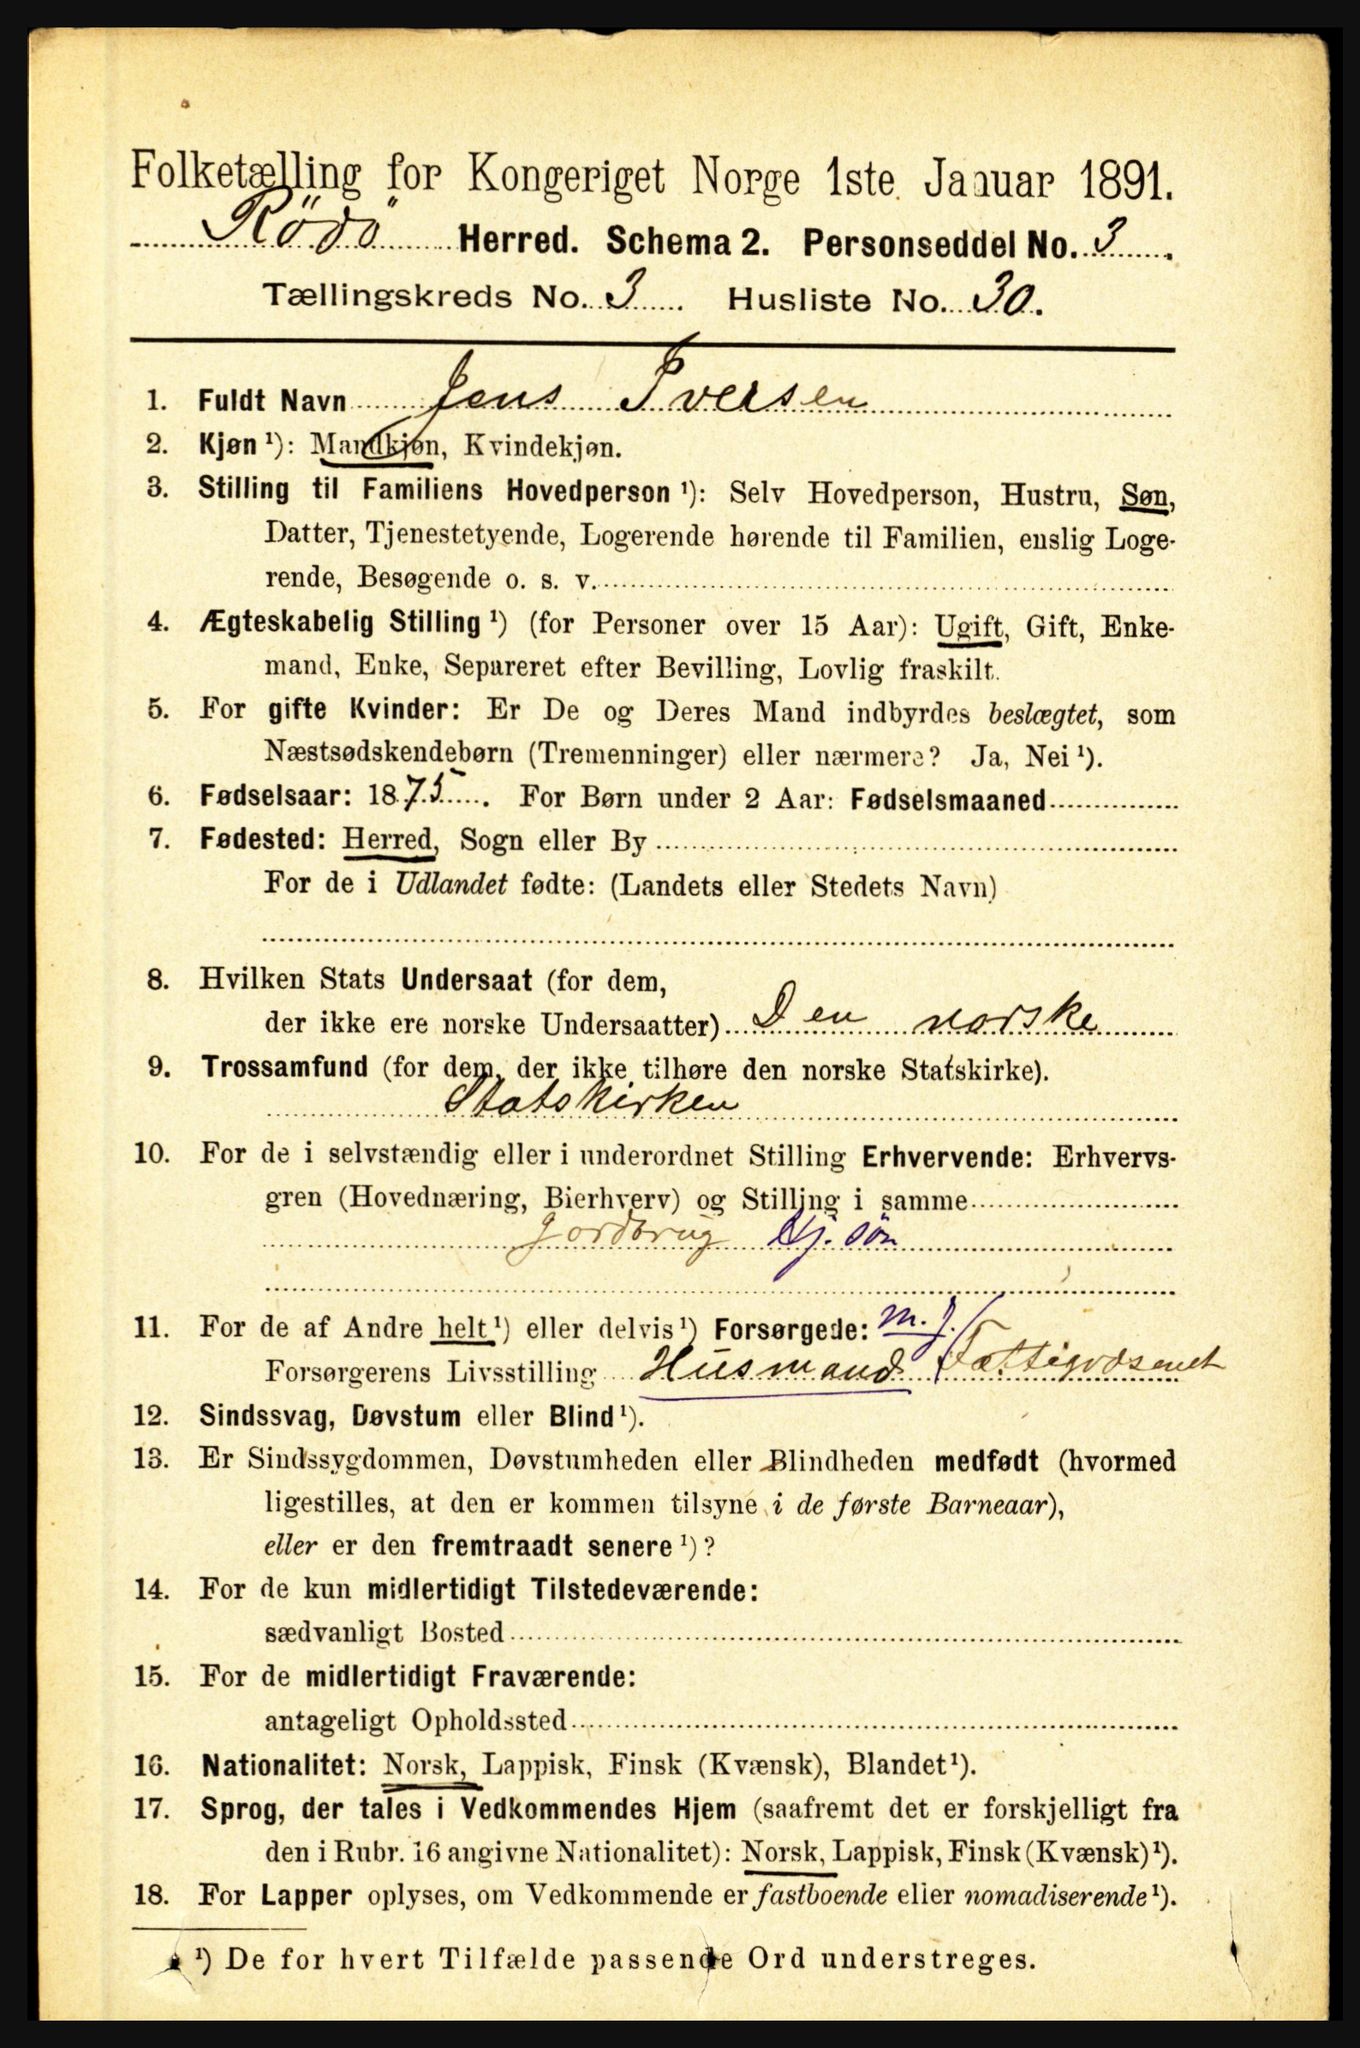 Folketælling for Kongeriget Norge 1ste Januar 1891.
Rödö Herred. Schema 2. Personseddel No. 3.
Tællingskreds No. 3 Husliste No. 30.
1. Fuldt Navn Jens Iversen
2. Kjøn ¹): Mandkjøn, Kvindekjøn.
3. Stilling til Familiens Hovedperson ¹): Selv Hovedperson, Hustru, Søn,
Datter, Tjenestetyende, Logerende hørende til Familien, enslig Loge-
rende, Besøgende o. s. v.
4. Ægteskabelig Stilling ¹) (for Personer over 15 Aar): Ugift, Gift, Enke-
mand, Enke, Separeret efter Bevilling, Lovlig fraskilt.
5. For gifte Kvinder: Er De og Deres Mand indbyrdes beslægtet, som
Næstsødskendebørn (Tremenninger) eller nærmere? Ja, Nei ¹).
6. Fødselsaar: 1875. For Børn under 2 Aar: Fødselsmaaned
7. Fødested: Herred, Sogn eller By
For de i Udlandet fødte: (Landets eller Stedets Navn)
8. Hvilken Stats Undersaat (for dem,
der ikke ere norske Undersaatter) Den norske
9. Trossamfund (for dem, der ikke tilhøre den norske Statskirke).
Statskirken
10. For de i selvstændig eller i underordnet Stilling Erhvervende: Erhvervs-
gren (Hovednæring, Bierhverv) og Stilling i samme
Jordbrug Hj. søn
11. For de af Andre helt ¹) eller delvis ¹) Forsørgede: m. j.
Forsørgerens Livsstilling Husmand
12. Sindssvag, Døvstum eller Blind ¹).
13. Er Sindssygdommen, Døvstumheden eller Blindheden medfødt (hvormed
ligestilles, at den er kommen tilsyne i de første Barneaar),
eller er den fremtraadt senere ¹)?
14. For de kun midlertidigt Tilstedeværende:
sædvanligt Bosted
15. For de midlertidigt Fraværende:
antageligt Opholdssted
16. Nationalitet: Norsk, Lappisk, Finsk (Kvænsk), Blandet ¹).
17. Sprog, der tales i Vedkommendes Hjem (saafremt det er forskjelligt fra
den i Rubr. 16 angivne Nationalitet): Norsk, Lappisk, Finsk (Kvænsk) ¹).
18. For Lapper oplyses, om Vedkommende er fastboende eller nomadiserende ¹).
¹) De for hvert Tilfælde passende Ord understreges.